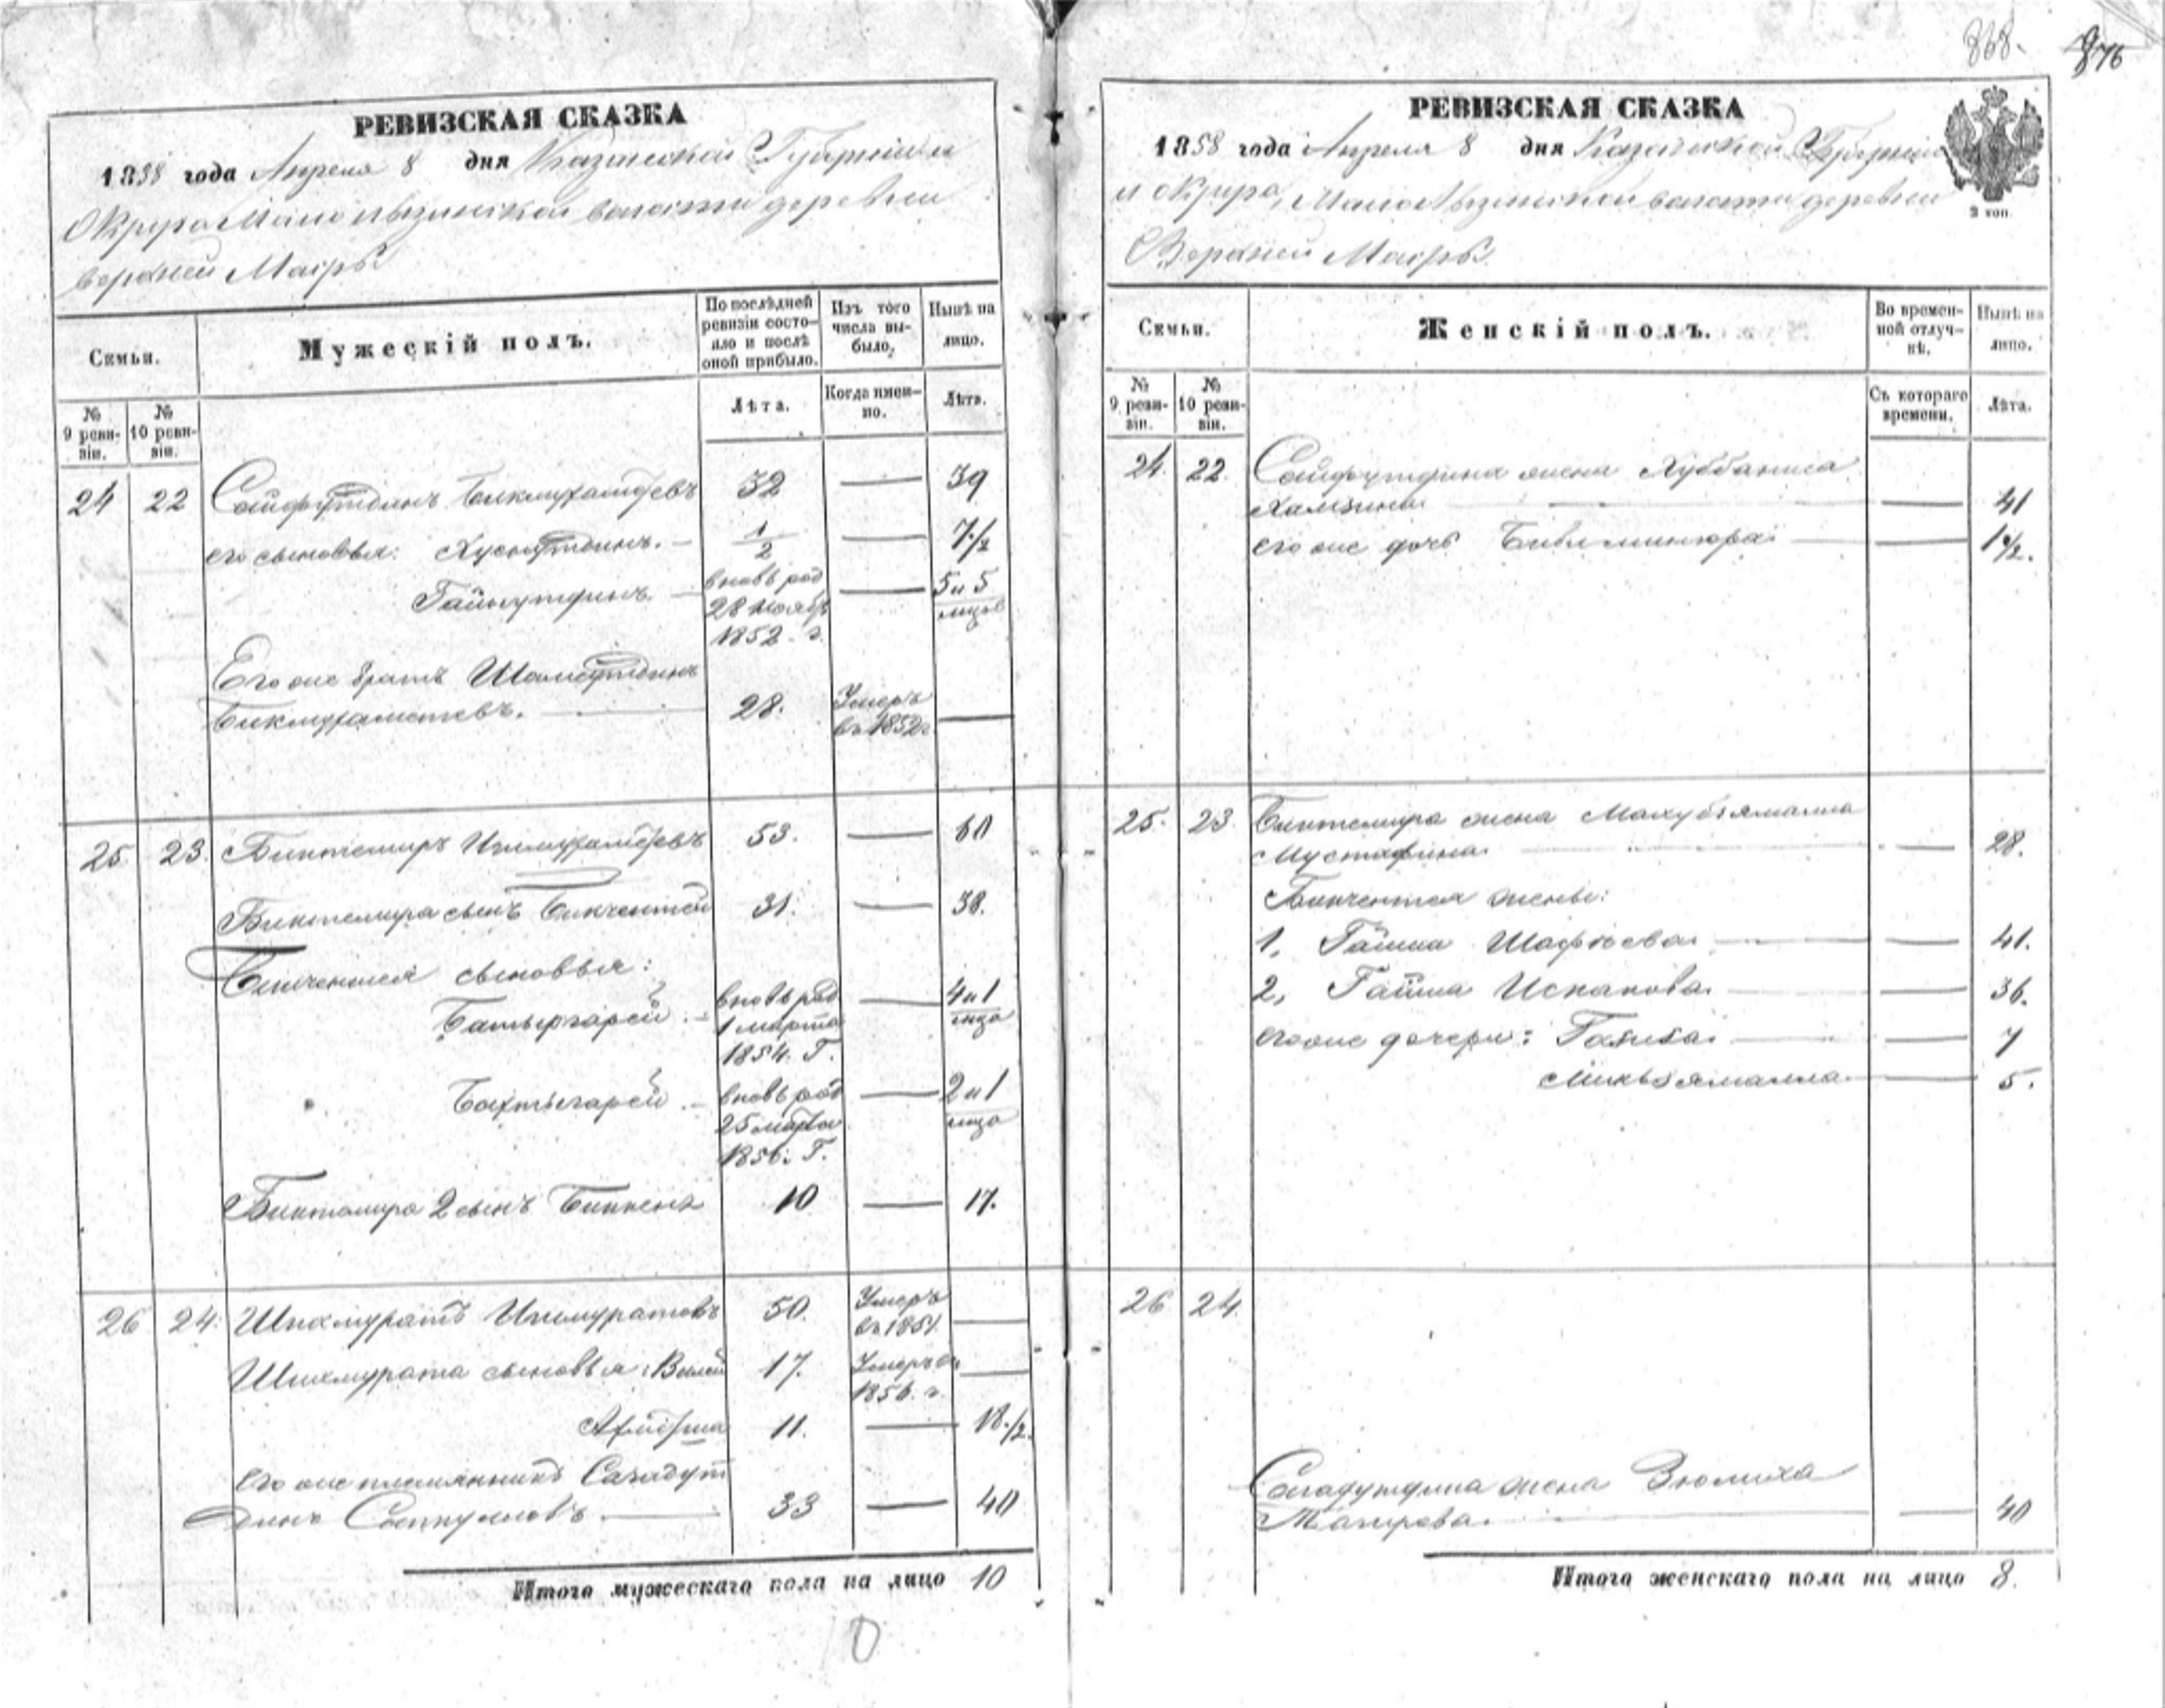 868.
876
РЕВИЗСКАЯ СКАЗКА
1858 года Апреля 8 дня Казанской Губернии и
Округа Мало деревни
верхней
Семьи.
Мужескій полъ.
По послѣдней ревизіи состояло и послѣ оной прибыло.
Изъ того числа выбыло,
Нынѣ на лицо.
№ 9 ревизіи.
№ 10 ревизіи.
Лѣта.
Когда именно.
Лѣта.
24 22 Сайфутдинъ Бикмухаметевъ 32 — 39
его сыновья: Хуснутдинъ. — 1/2 — 7 1/2
Гайнутдинъ — вновь род — 5 и 5
28 ноябр мцов
1852. г.
Его же братъ Шамсутдинъ
Бикмухаметевъ. — 28. Умеръ —
въ 1852 г
25 23. Биктемиръ Ишмухаметевъ 53. — 60
Биктемира сынъ Бикчентей 31. — 38.
Бикчентея сыновья:
Батыргарей. — вновь род — 4 и 1
1 марта мца
1854. Г.
Бахтыгарей. — вновь род — 2 и 1
25 марта мца
1856. Г.
Биктемира 2 сынъ 10 — 17.
26 24. Шихмуратъ Ишмуратовъ 50. Умеръ —
въ 1851.
Шихмурата сыновья: Вилей 17. Умеръ въ —
1856. г.
11. — 18 1/2.
его же племянникъ Сагадут
динъ 33 — 40
Итого мужескаго пола на лицо 10
РЕВИЗСКАЯ СКАЗКА
1858 года Апреля 8 дня Казанской Губернии
и округа, Мало волости деревни
Верхней
2 коп.
Семьи.
Женскій полъ.
Во временной отлучкѣ.
Нынѣ на лицо.
№ 9 ревизіи.
№ 10 ревизіи.
Съ котораго времени.
Лѣта.
24. 22. Сайфутдина жена Хуббаниса
Хамзина — — 41
его же дочь — — 1 1/2.
25. 23. Биктемира жена Махубзямалма
Мустафина — — 28.
Бикчентея жены:
1, Гайша — — 41.
2, Гайша Исхакова — — 36.
его же дочери: Газиза — — 7
— — 5.
26 24.
Сагадутдина жена Зюлиха
Тагирова. — — 40
Итого женскаго пола на лицо 8.